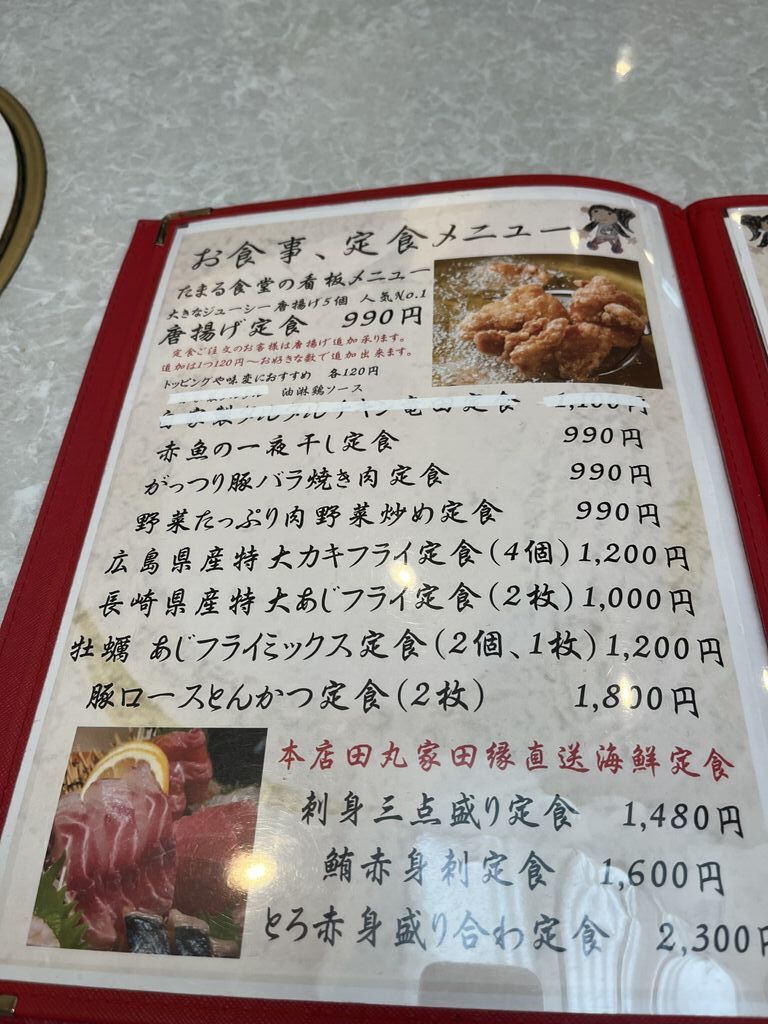 お食事、定食メニュー
たまる食堂の看板メニュー
大きなジューシー唐揚げ5個 人気No.1
唐揚げ定食 990円
定食ご注文のお客様は唐揚げ追加承ります。
追加は1つ120円～お好きな数で追加出来ます。
トッピングや味変におすすめ 各120円
油淋鶏ソース
定食
赤魚の一夜干し定食 990円
がっつり豚バラ焼き肉定食 990円
野菜たっぷり肉野菜炒め定食 990円
広島県産特大カキフライ定食(4個) 1,200円
長崎県産特大あじフライ定食(2枚) 1,000円
牡蠣 あじフライミックス定食(2個、1枚) 1,200円
豚ロースとんかつ定食(2枚) 1,800円
本店田丸家田縁直送海鮮定食
刺身三点盛り定食 1,480円
鮪赤身刺定食 1,600円
とろ赤身盛り合わ定食 2,300円